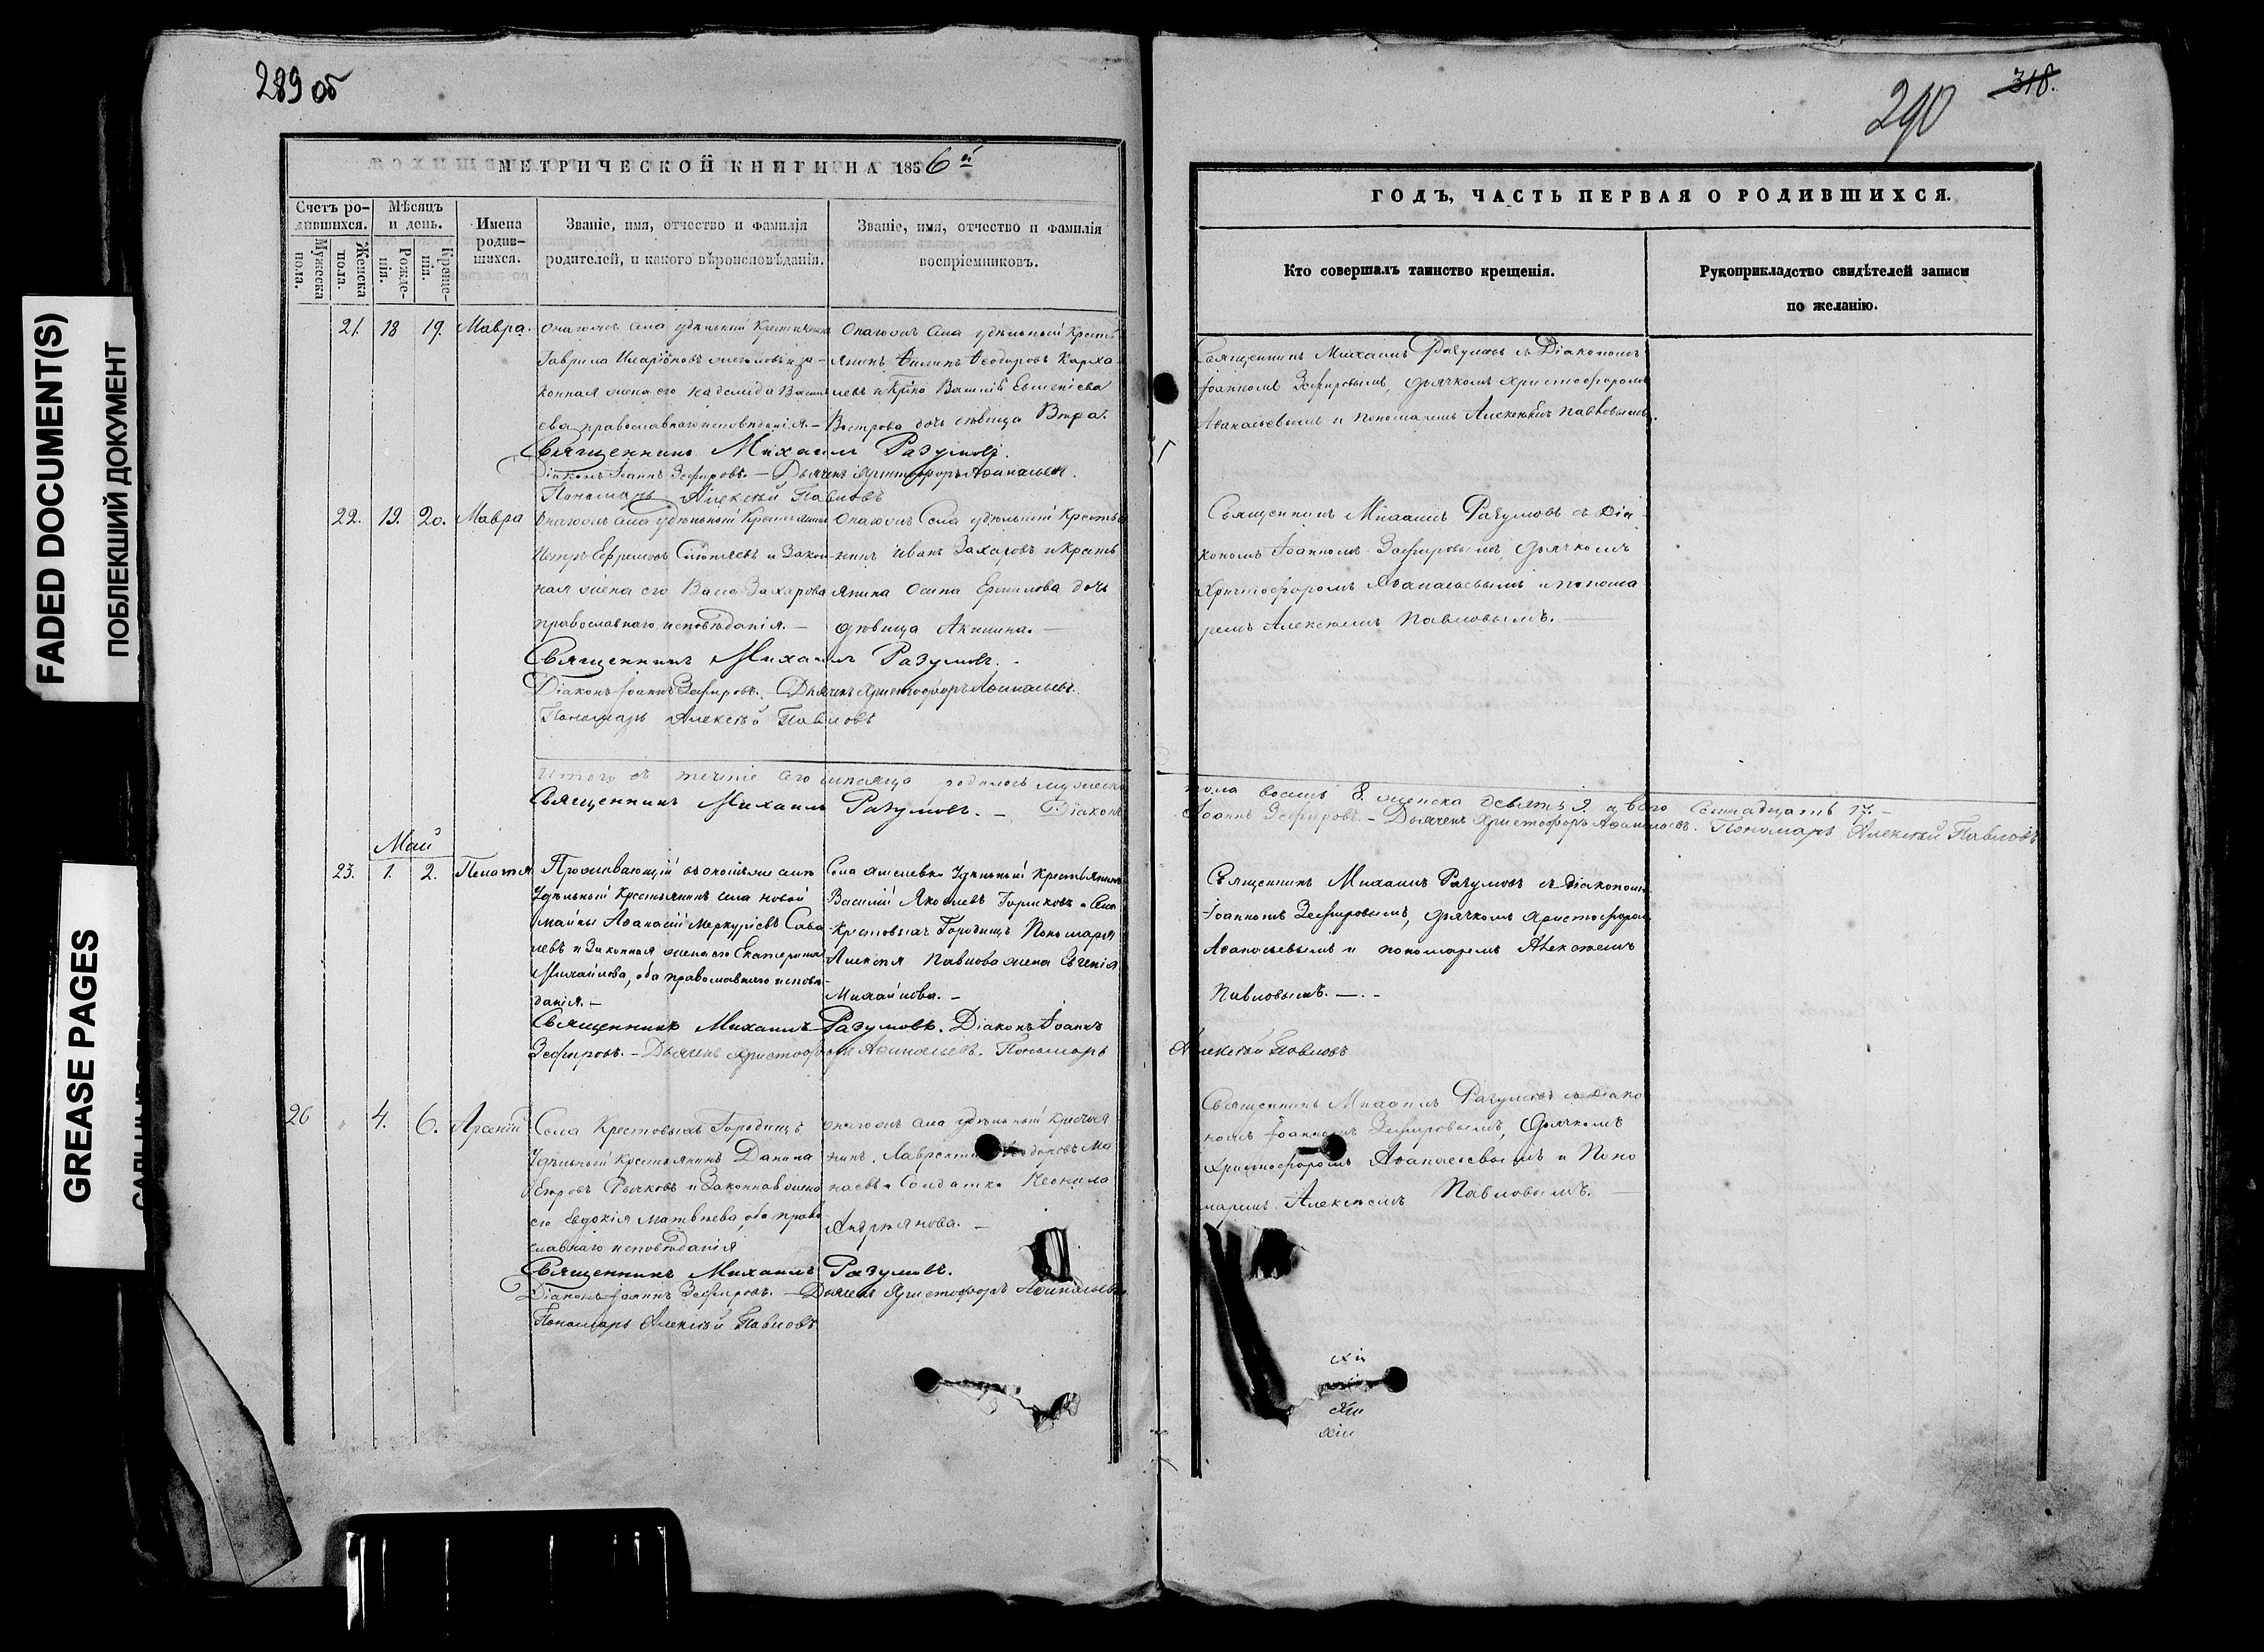 289 об
МЕТРИЧЕСКОЙ КНИГИ НА 1856 й
Счетъ ро-
дившихся.
Мужеска
пола.
Женска
пола.
Мѣсяцъ
и день.
Рожде-
нія.
Креще-
нія.
Имена
родив-
шихся.
Званіе, имя, отчество и фамилія
родителей, и какого вѣроисповѣданія.
Званіе, имя, отчество и фамилія
воспріемниковъ.
21. 18 19. Мавра.
села удѣльный Крестьянинъ
Гаврила Иларіоновъ и за-
конная жена его Василь
ева православнаго исповѣданія. –
села удѣльный Кресть
янинъ Филипъ Ѳеодоровъ
дочь дѣвица Вѣра.
Священникъ Михаилъ Разумовъ.
Діаконъ Іоаннъ Зефировъ. – Дьячекъ Христофоръ Аѳанасьевъ.
Пономарь Алексѣй Павловъ
22. 19. 20. Мавра
села удѣльный Крестьянинъ
Петръ Ефремовъ и Закон
ная жена его Захарова
православнаго исповѣданія. –
Села удѣльный Кресть
нинъ Иванъ Захаровъ и Кресть
янина Осипа Ермилова дочь
дѣвица Акилина. –
Священникъ Михаилъ Разумовъ. -
Діаконъ Іоаннъ Зефировъ. – Дьячекъ Христофоръ Аѳанасьевъ.
Пономарь Алексѣй Павловъ
Итого въ теченіе сего мѣсяца родилось мужеска
Священникъ Михаилъ Разумовъ. – Діаконъ
Май
23. 1. 2. Пелагея
Проживающій въ
Удѣльный Крестьянинъ села Новой
майны Аѳанасій Меркурьевъ Саве
левъ и Законная жена его Екатерина
Михайлова, оба православнаго исповѣ-
данія. –
Села Удѣльный Крестьянинъ
Василій Яковлевъ Горшковъ и Села
Крестовыхъ Городищъ Пономаря
Алексѣя Павлова жена Евгенія
Михайлова. –
Священникъ Михаилъ Разумовъ. Діаконъ Іоаннъ
Зефировъ. – Дьячекъ Христофоръ Аѳанасьевъ. Пономарь
26 " 4. 6. Арсеній
Села Крестовыхъ Городищъ
Удѣльный Крестьянинъ Данила
Петровъ Рычковъ и Законная жена
его Евдокія Матвѣева, оба право
славнаго исповѣданія
села удѣльный
нинъ Лаврентій
и Солдатка Неонила
Андреянова. –
Священникъ Михаилъ Разумовъ.
Діаконъ Іоаннъ Зефировъ. – Дьячекъ Христофоръ Аѳанасьевъ
Пономарь Алексѣй Павловъ
318.
290
ГОДЪ, ЧАСТЬ ПЕРВАЯ О РОДИВШИХСЯ.
Кто совершалъ таинство крещенія.
Рукоприкладство свидѣтелей записи
по желанію.
Священникъ Михаилъ Разумовъ съ Діакономъ
Іоанномъ Зефировымъ, дьячкомъ Христофоромъ
Аѳанасьевымъ и пономаремъ Алексѣемъ Павловымъ.
Священникъ Михаилъ Разумовъ съ Діа
кономъ Іоанномъ Зефировымъ, дьячкомъ
Христофоромъ Аѳанасьевымъ и понома
ремъ Алексѣемъ Павловымъ. –
пола восемь 8. женска девять 9. и всего семнадцать 17. –
Іоаннъ Зефировъ. – Дьячекъ Христофоръ Аѳанасьевъ. Пономарь Алексѣй Павловъ
Священникъ Михаилъ Разумовъ съ Діакономъ
Іоанномъ Зефировымъ, дьячкомъ Христофоромъ
Аѳанасьевымъ и пономаремъ Алексѣемъ
Павловымъ. –. -
Алексѣй Павловъ
Священникъ Михаилъ Разумовъ съ Діако
номъ Іоанномъ Зефировымъ, Дьячкомъ
Христофоромъ Аѳанасьевымъ и Поно
маремъ Алексѣемъ Павловымъ. –
FADED DOCUMENT(S)
ПОБЛЕКШИЙ ДОКУМЕНТ
GREASE PAGES